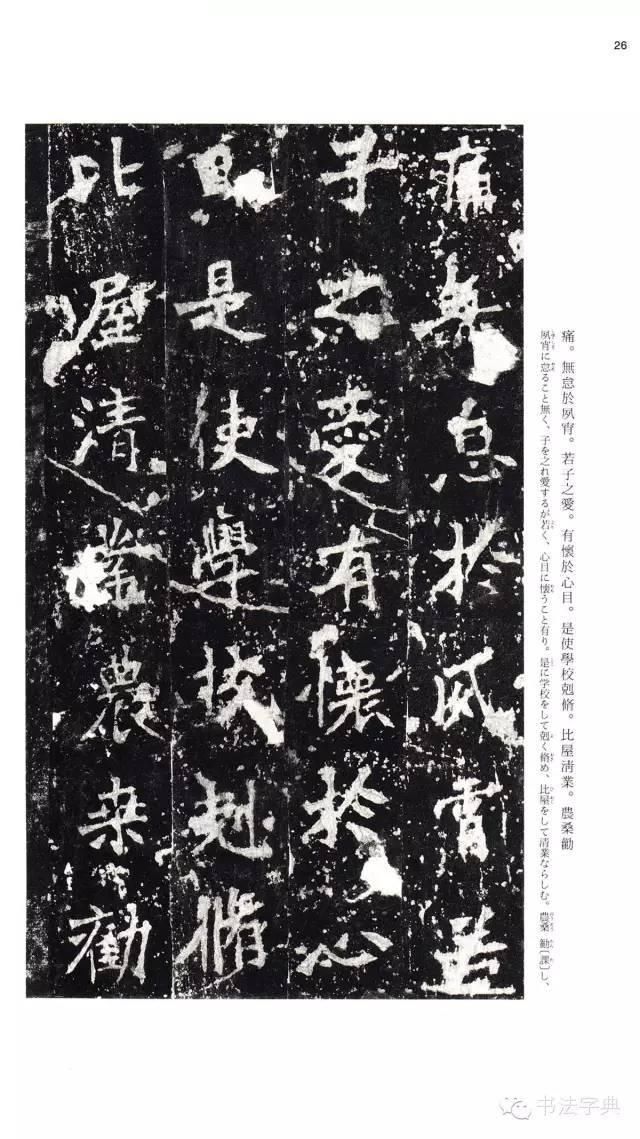 26
痛無怠於夙宵若
子之愛有懷於心
目是使學校剋脩
比屋清業農桒勸
痛。無怠於夙宵。若子之愛。有懷於心目。是使學校剋脩。比屋淸業。農桑勸
夙宵に怠ること無く、子を之れ愛するが若く、心目に懐うこと有り。是に学校をして剋く脩め、比屋をして清業ならしむ。農桑 勧〔課〕し、
书法字典